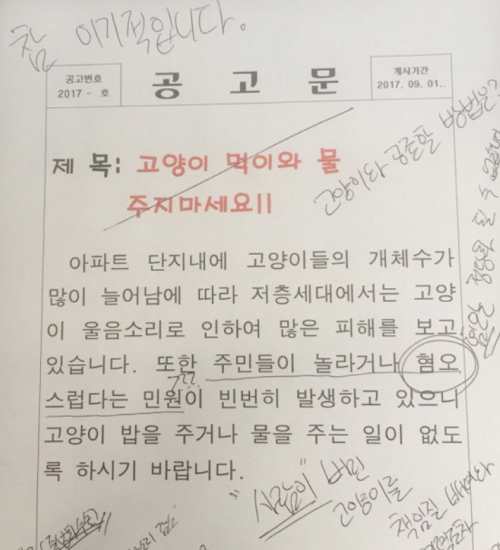 참 이기적입니다.
공고번호
2017 - 호
공 고 문
게시기간
2017. 09. 01..
제 목: 고양이 먹이와 물
주지마세요!!
고양이와 공존할 방법은?
아파트 단지내에 고양이들의 개체수가
많이 늘어남에 따라 저층세대에서는 고양
이 울음소리로 인하여 많은 피해를 보고
있습니다. 또한 주민들이 놀라거나 혐오
???
스럽다는 민원이 빈번히 발생하고 있으니
고양이 밥을 주거나 물을 주는 일이 없도
록 하시기 바랍니다.
"사람이" 버린
고양이를
책임질